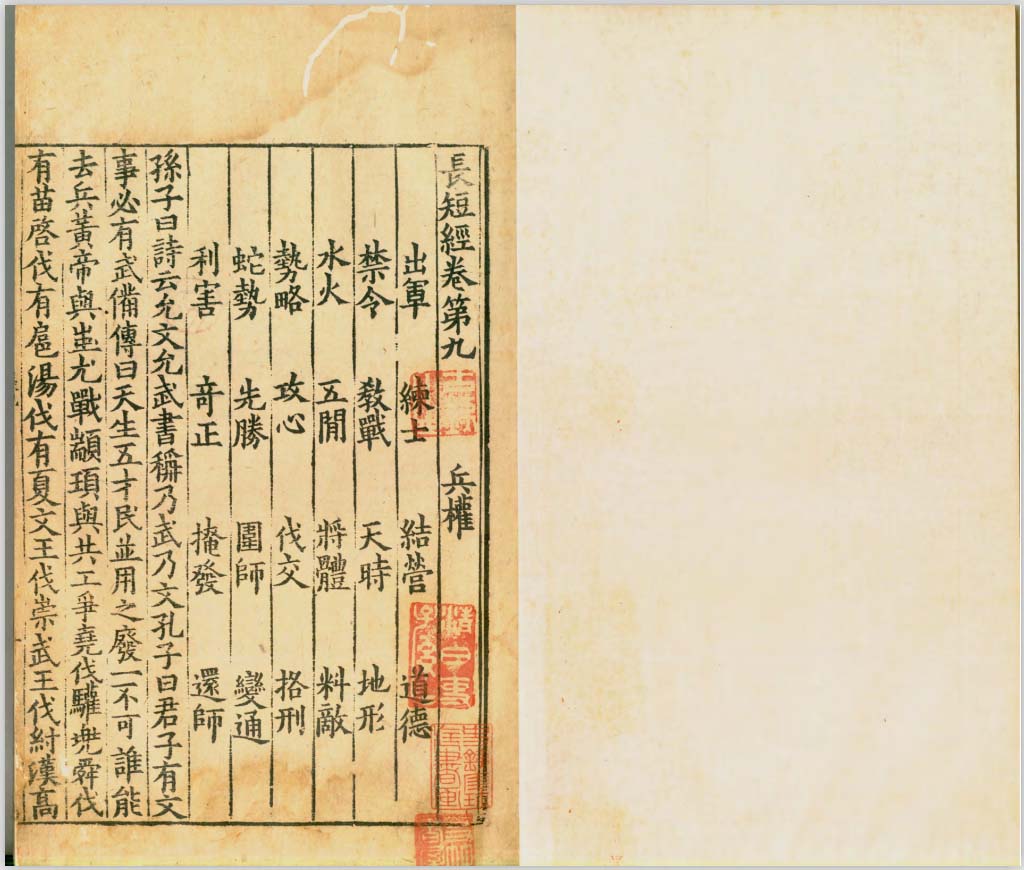 長短經卷第九 兵權
出軍 練士 結營 道德
禁令 教戰 天時 地形
水火 五間 將體 料敵
勢略 攻心 伐交 挌刑
蛇勢 先勝 圍師 變通
利害 奇正 掩發 還師
孫子曰詩云允文允武書稱乃武乃文孔子曰君子有文
事必有武備傳曰天生五才民並用之廢一不可誰能
去兵黃帝與蚩尤戰顓頊與共工爭堯伐驩兠舜伐
有苗啓伐有扈湯伐有夏文王伐崇武王伐紂漢高